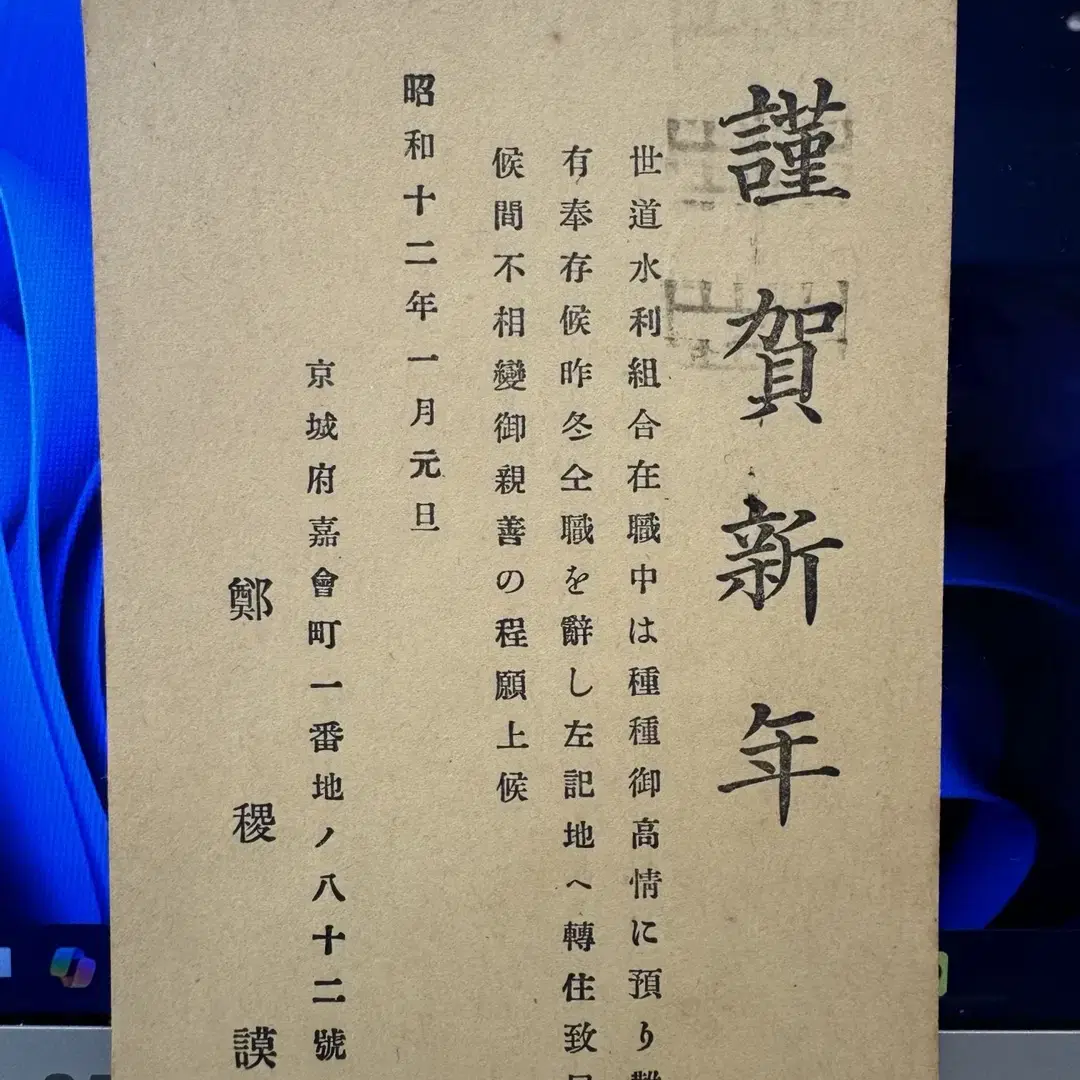 謹賀新年
世道水利組合在職中は種種御高情に預り
有奉存候昨冬仝職を辭し左記地へ轉住致
候間不相變御親善の程願上候
昭和十二年一月元旦
京城府嘉會町一番地ノ八十二號
鄭稷謨